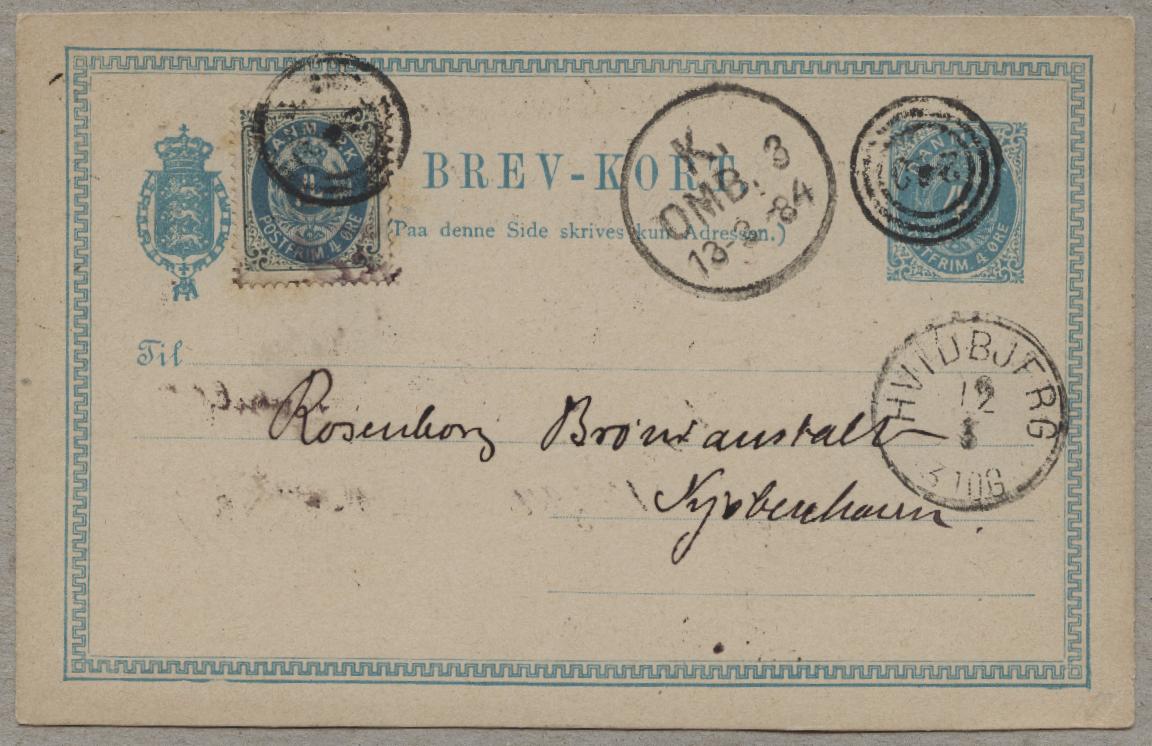 DANMARK
POSTFRIM 4 ØRE
BREV-KORT
(Paa denne Side skrives kun Adressen.)
K.
OMB. 3
13-3-84
POSTFRIM 4 ØRE
Til
HVIDBJERG
12
3
3 TOG
Rosenborg Brøndanstalt
Kjøbenhavn.